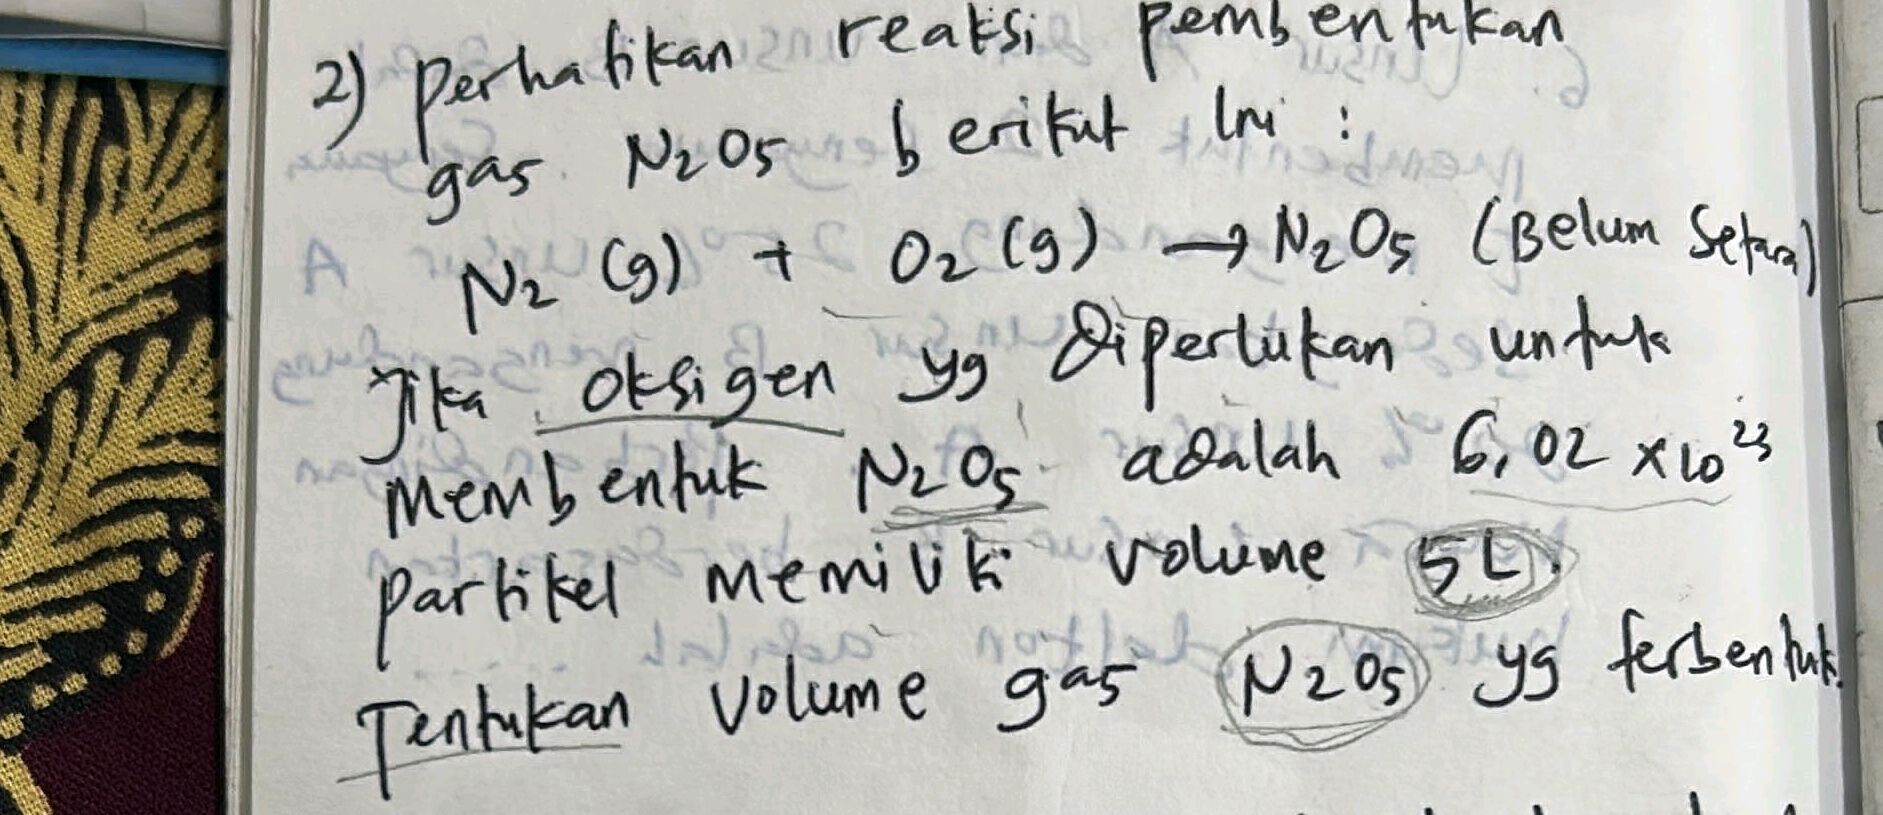 2) perhatikan reaksi pembentukan
gas N₂O₅ berikut Ini :
N₂ (g) + O₂ (g) → N₂O₅ (Belum Setara)
Jika oksigen yg diperlukan untuk
Membentuk N₂O₅ adalah 6,02 x 10²³
partikel memiliki volume 5 L.
Tentukan volume gas N₂O₅ yg terbentuk.